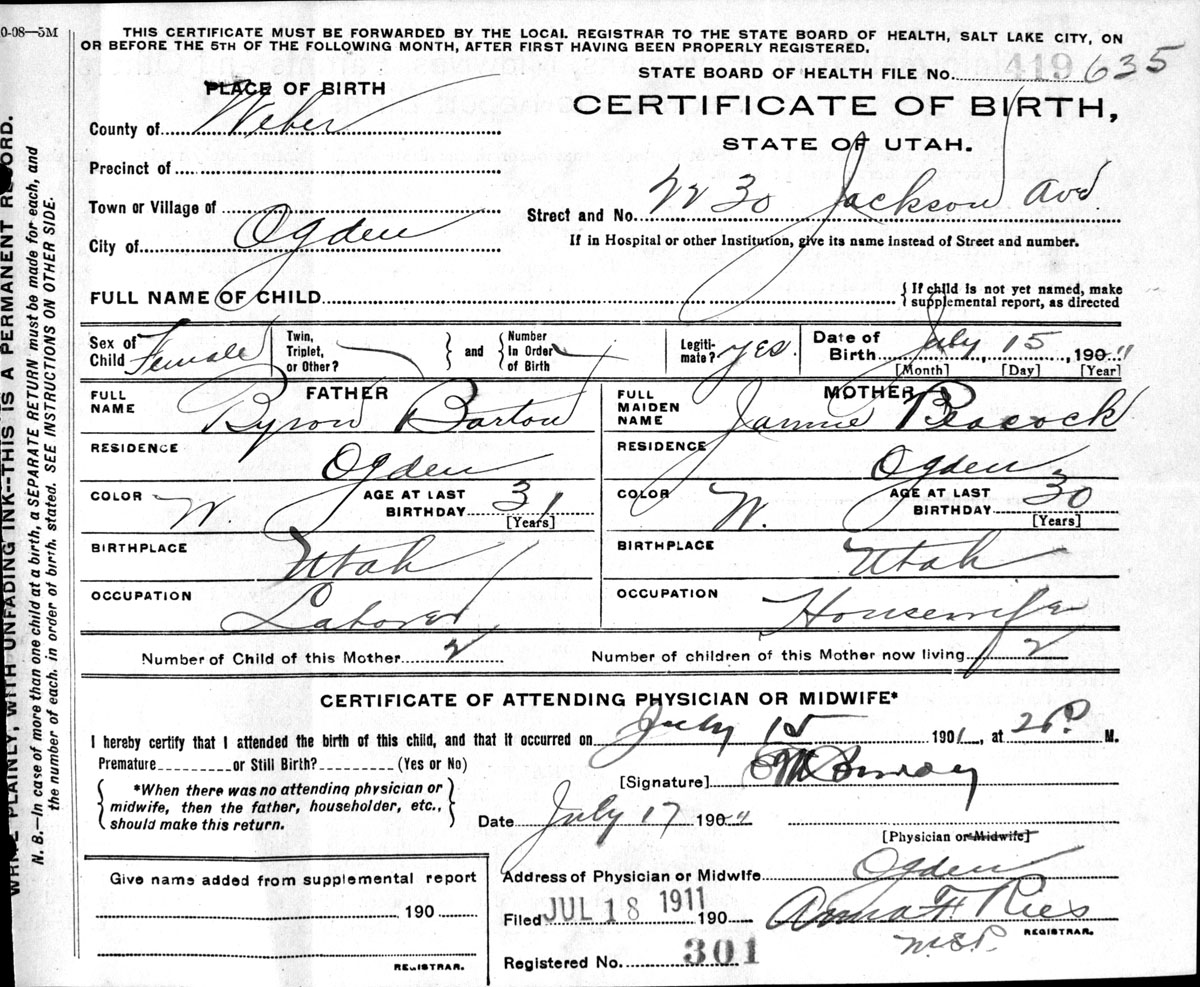 0-08—5M
THIS CERTIFICATE MUST BE FORWARDED BY THE LOCAL REGISTRAR TO THE STATE BOARD OF HEALTH, SALT LAKE CITY, ON
OR BEFORE THE 5TH OF THE FOLLOWING MONTH, AFTER FIRST HAVING BEEN PROPERLY REGISTERED.
STATE BOARD OF HEALTH FILE No. 419 635
PLACE OF BIRTH
CERTIFICATE OF BIRTH,
STATE OF UTAH.
County of Weber
Precinct of
Town or Village of
City of Ogden
Street and No. 2230 Jackson Ave.
If in Hospital or other Institution, give its name instead of Street and number.
FULL NAME OF CHILD
{ If child is not yet named, make
supplemental report, as directed
Sex of Child Female
Twin, Triplet, or Other?
} and { Number In Order of Birth
Legiti-mate? yes.
Date of Birth July, 15, 190 11
[Month] [Day] [Year]
FATHER
FULL NAME Byron Barton
RESIDENCE Ogden
COLOR W. AGE AT LAST BIRTHDAY 31 [Years]
BIRTHPLACE Utah
OCCUPATION Laborer
MOTHER
FULL MAIDEN NAME Jannie Peacock
RESIDENCE Ogden.
COLOR W. AGE AT LAST BIRTHDAY 30 [Years]
BIRTHPLACE Utah
OCCUPATION Housewife
Number of Child of this Mother 2 Number of children of this Mother now living 2
CERTIFICATE OF ATTENDING PHYSICIAN OR MIDWIFE*
I hereby certify that I attended the birth of this child, and that it occurred on July 15 1901, at M.
Premature or Still Birth? (Yes or No)
[Signature]
*When there was no attending physician or
midwife, then the father, householder, etc.,
should make this return.
Date July 17 190 11
[Physician or Midwife]
Address of Physician or Midwife Ogden
Give name added from supplemental report
190
REGISTRAR.
Filed JUL 18 1911 190 Anna F Ries
REGISTRAR.
Registered No. 301
WRITE PLAINLY, WITH UNFADING INK--THIS IS A PERMANENT RECORD.
N. B.—In case of more than one child at a birth, a SEPARATE RETURN must be made for each, and
the number of each, in order of birth, stated. SEE INSTRUCTIONS ON OTHER SIDE.